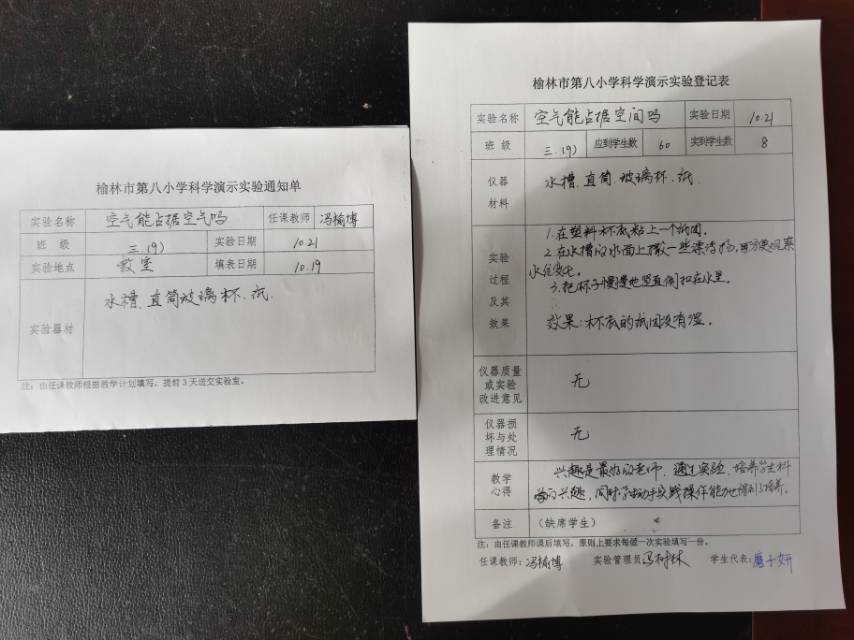 榆林市第八小学科学演示实验通知单
实验名称 空气能占据空气吗 任课教师 冯楠博
班 级 三.(9) 实验日期 10.21
实验地点 教室 填表日期 10.19
实验器材 水槽.直筒玻璃杯.纸.
注:由任课教师根据教学计划填写,提前3天送交实验室。
榆林市第八小学科学演示实验登记表
实验名称 空气能占据空间吗 实验日期 10.21
班 级 三.(9) 应到学生数 60 实到学生数 8
仪器材料 水槽.直筒.玻璃杯.纸.
实验过程及其效果
1.在塑料杯底粘上一个纸团.
2.在水槽的水面上撒一些漂浮物,方便观察
水位变化.
3.把杯子慢慢地竖直倒扣在水里.
效果:杯底的纸团没有湿.
仪器质量或实验改进意见 无
仪器损坏与处理情况 无
教学心得 兴趣是最好的老师.通过实验.培养学生科
学的兴趣,同时学生动手实践操作能力也得到了培养.
备注 (缺席学生)
注:由任课教师课后填写,原则上要求每做一次实验填写一份。
任课教师:冯楠博 实验管理员 冯树林 学生代表: